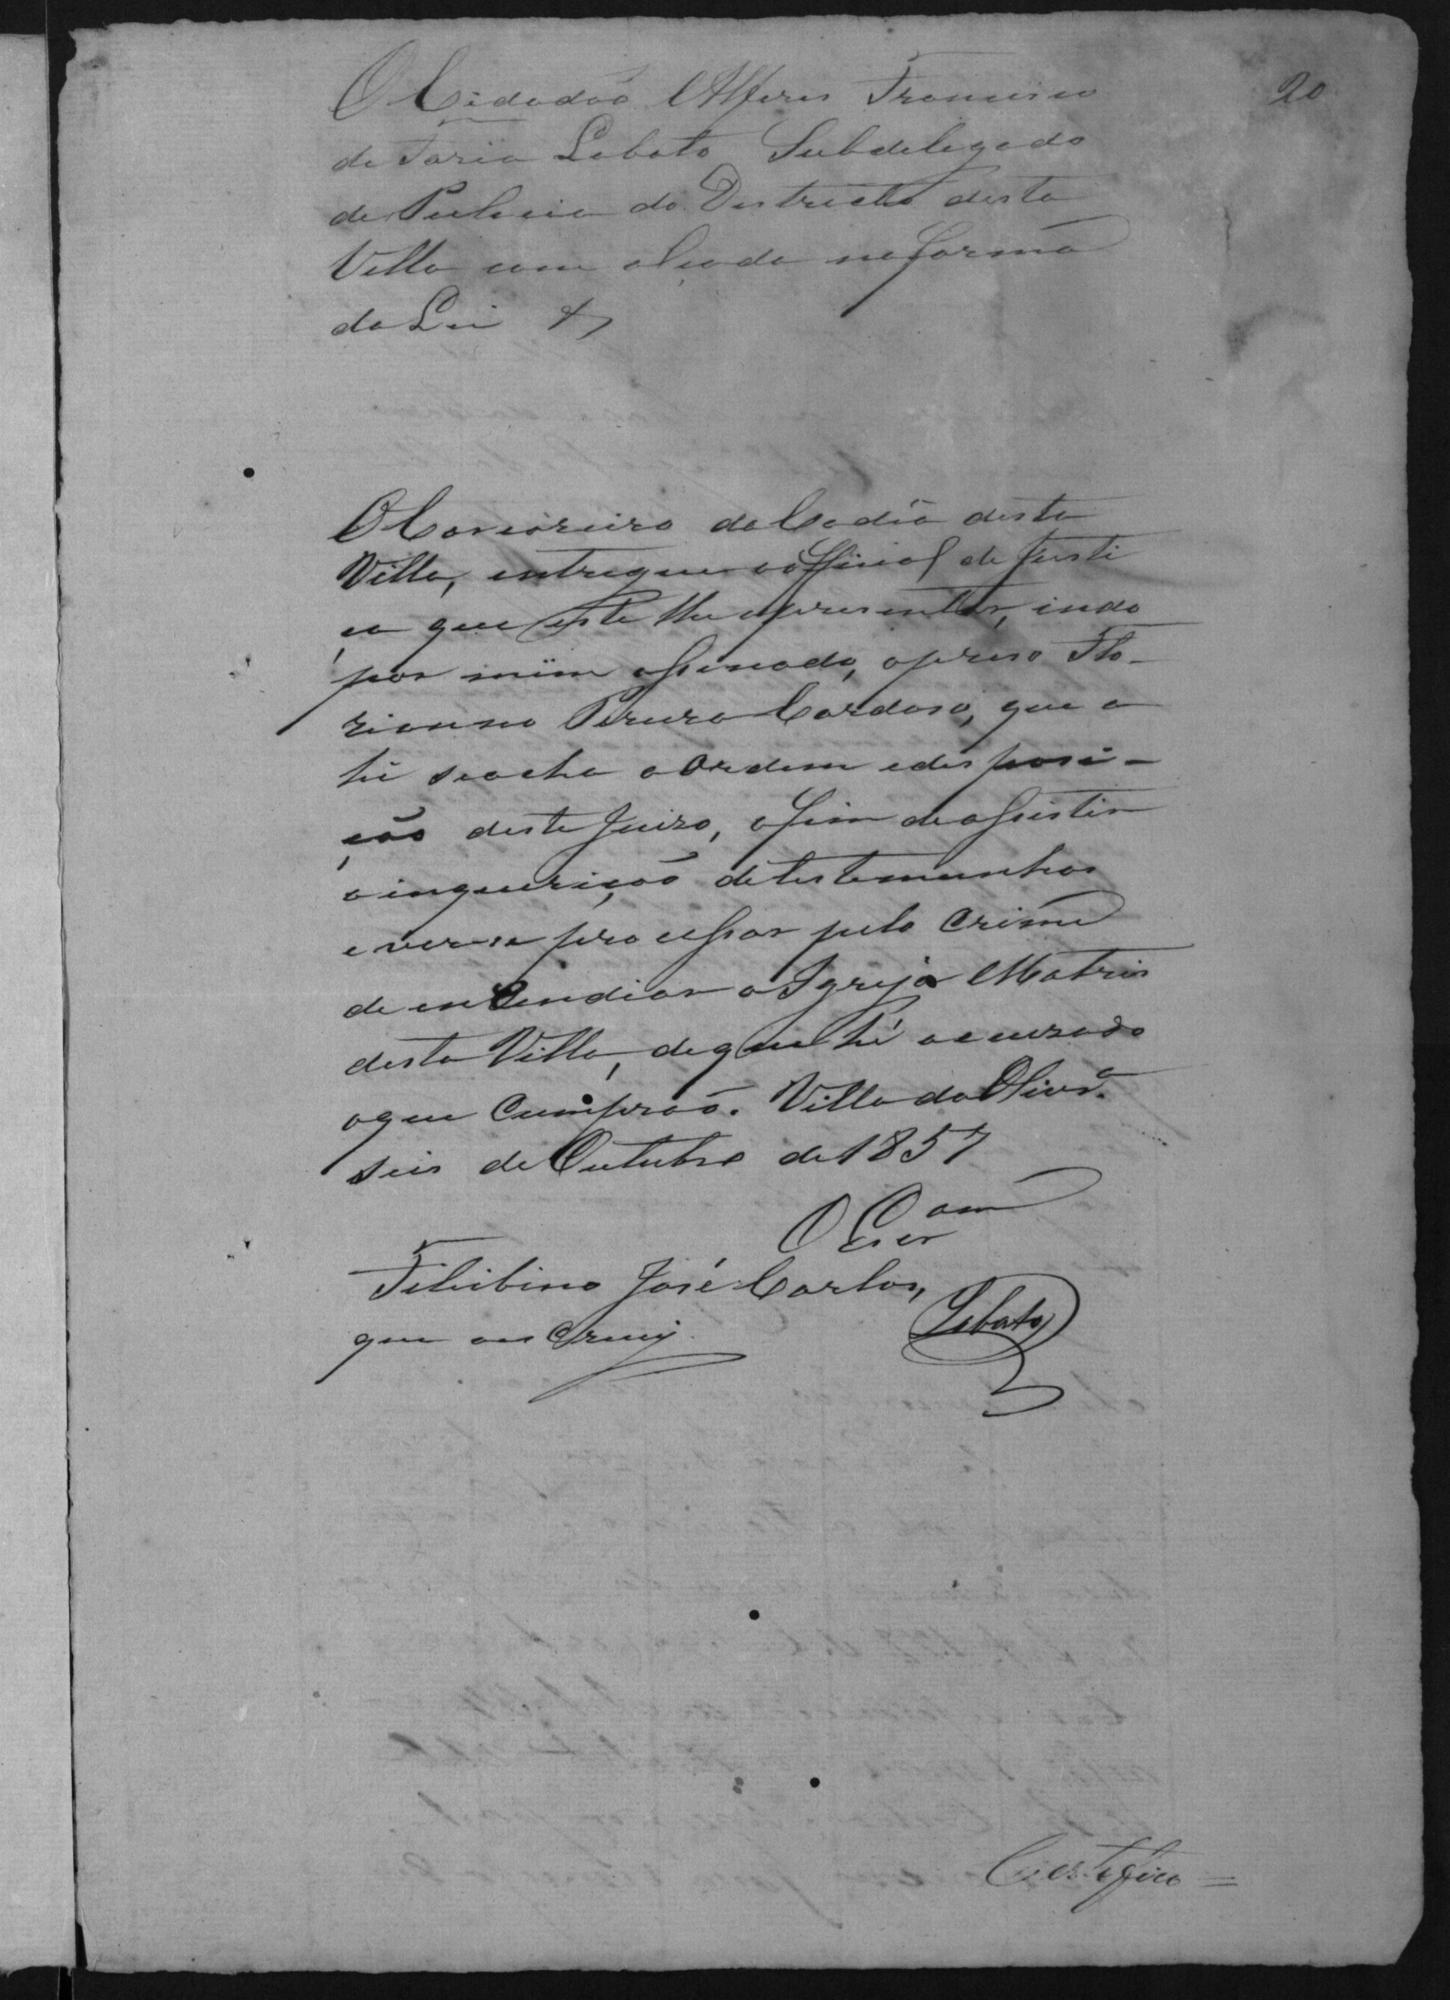 20
O Cidadão Alferes Francisco
de Faria Lobato Subdelegado
de Policia do Districto desta
Villa com alçada na forma
da Lei &
O Carcereiro da Cadêa desta
Villa, entregue ao Official de Justi
ça que este lhe apresentar, indo
por mim assignado, o preso Flo-
rianno Pereira Cardoso, que a
hi se acha a Ordem e disposi-
ção deste Juizo, afim de assistir
a inquirição de testemunhas
e ver-se processar pelo Crime
de encendiar a Igreja Matris
desta Villa, de que hé accuzado
o que Cumpra. Villa da Olivrª
seis de Outubro de 1857
O Escram
Felisbino José Carlos,
que o escrevy
Lobato
Certefico =